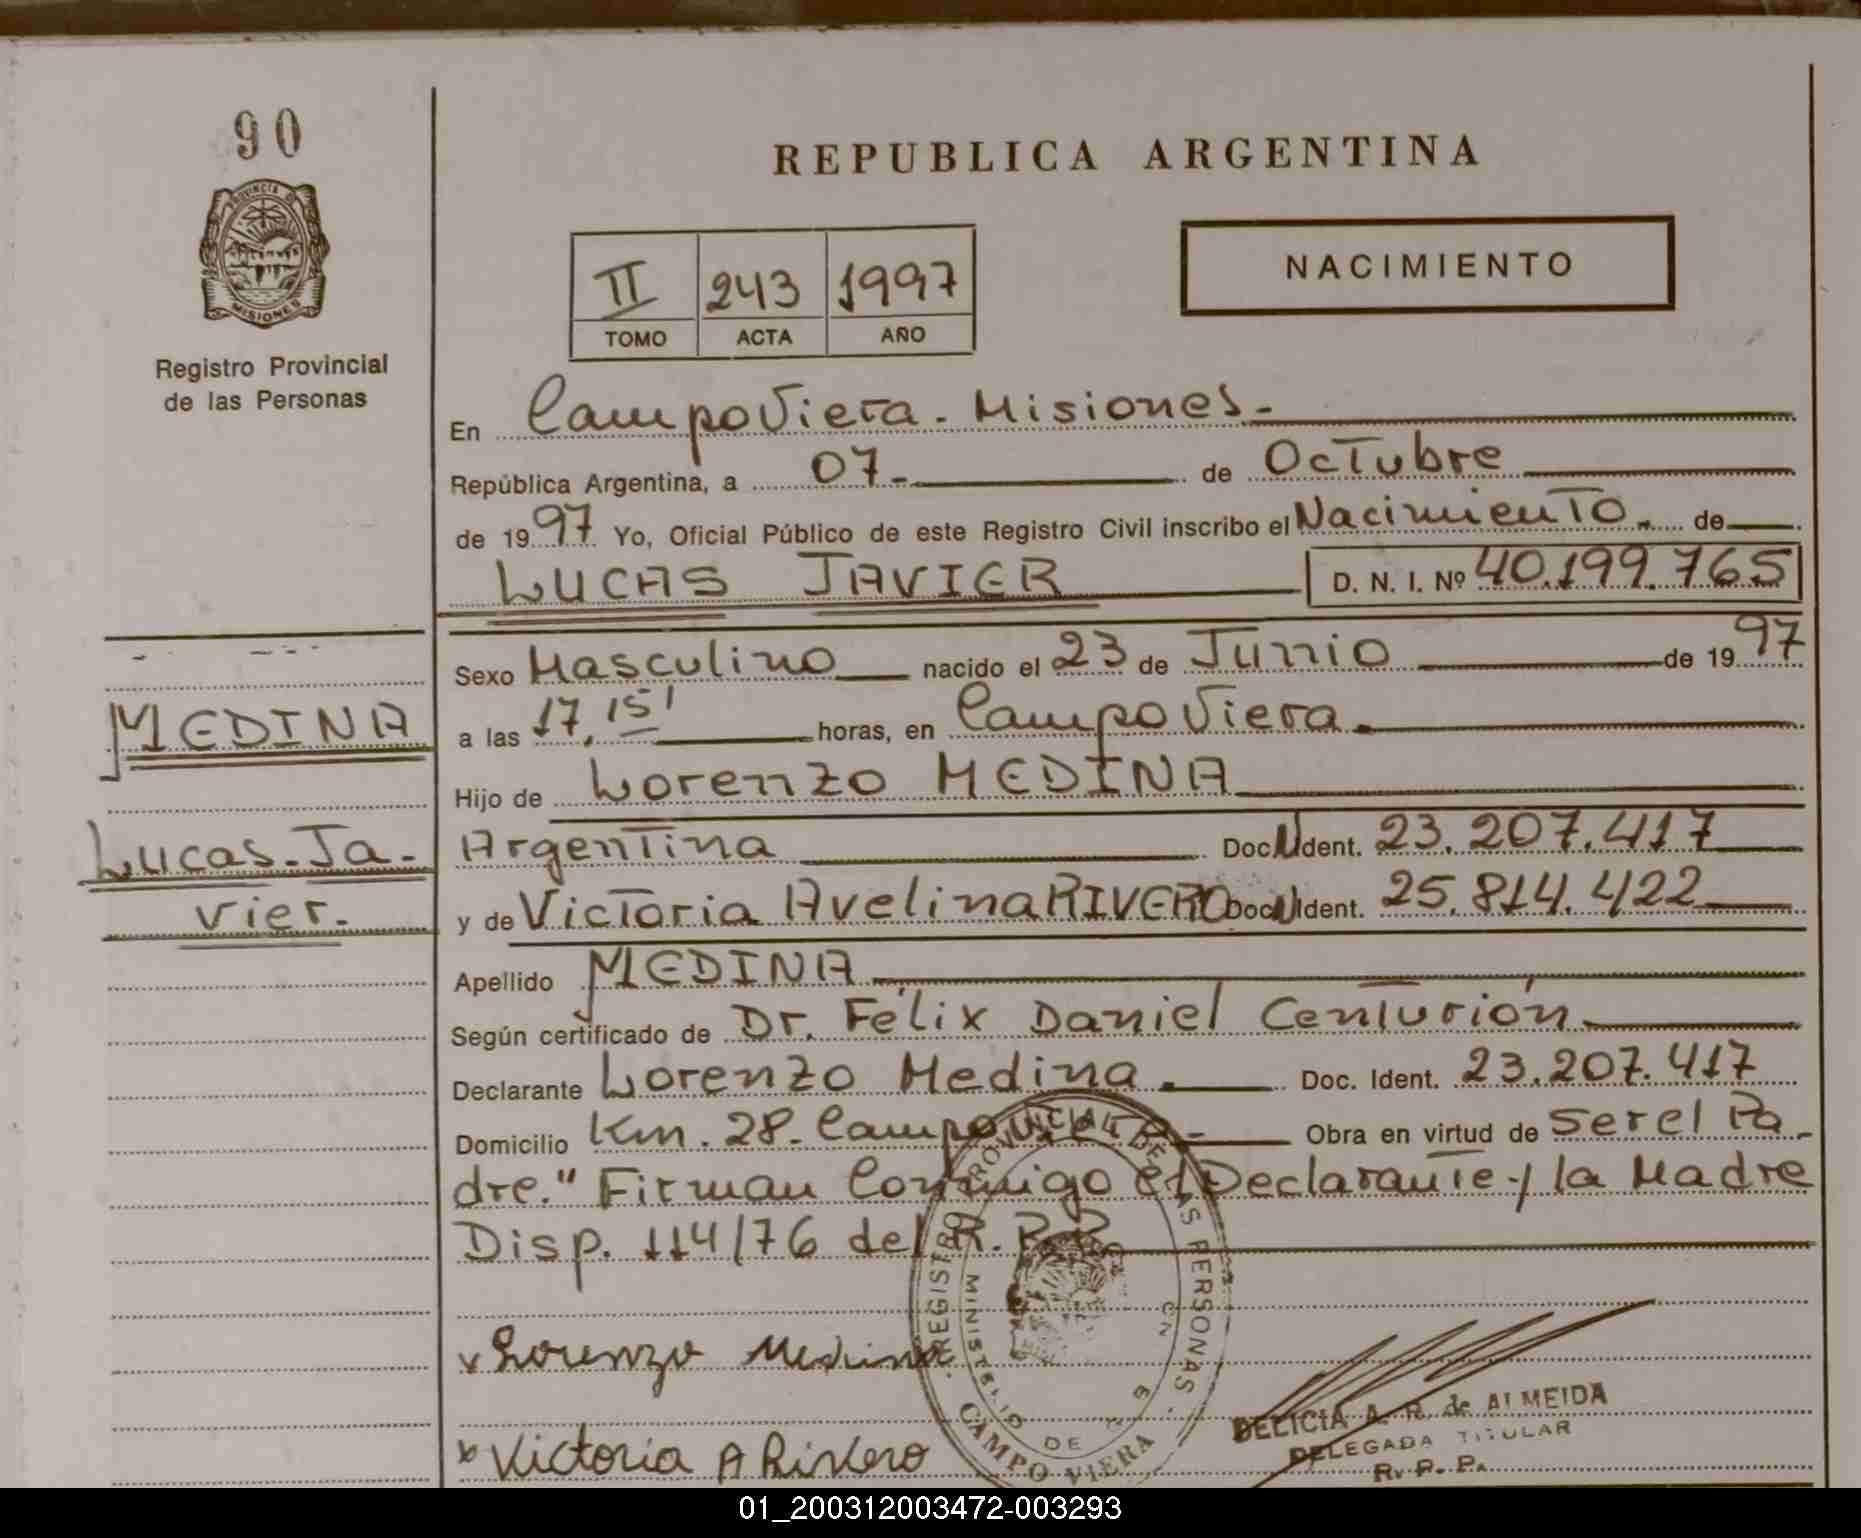 90
REPUBLICA ARGENTINA
PROVINCIA DE
MISIONES
Registro Provincial
de las Personas
II 243 1997
TOMO ACTA AÑO
NACIMIENTO
En Campo Viera - Misiones -
República Argentina, a 07 - de Octubre
de 1997 Yo, Oficial Público de este Registro Civil inscribo el Nacimiento. de
LUCAS JAVIER D. N. I. Nº 40.199.765
Sexo Masculino nacido el 23 de Junio de 1997
MEDINA
a las 17,15' horas, en Campo Viera.
Hijo de Lorenzo MEDINA
Lucas-Ja-
vier.
Argentina Doc. N Ident. 23.207.417
y de Victoria Avelina RIVERO Doc. N Ident. 25.814.422
Apellido MEDINA
Según certificado de Dr. Félix Daniel Centurión
Declarante Lorenzo Medina. Doc. Ident. 23.207.417
Domicilio Km. 28- Campo Viera - Obra en virtud de ser el Pa-
dre." Firman Conmigo el Declarante y la Madre
Disp. 114/76 del R.P.P.
REGISTRO PROVINCIAL DE LAS PERSONAS
MINISTERIO DE
CAMPO VIERA
x Lorenzo Medina
x Victoria A Rivero
DELICIA A. R. de ALMEIDA
DELEGADA TITULAR
R. P. P.
01_200312003472-003293